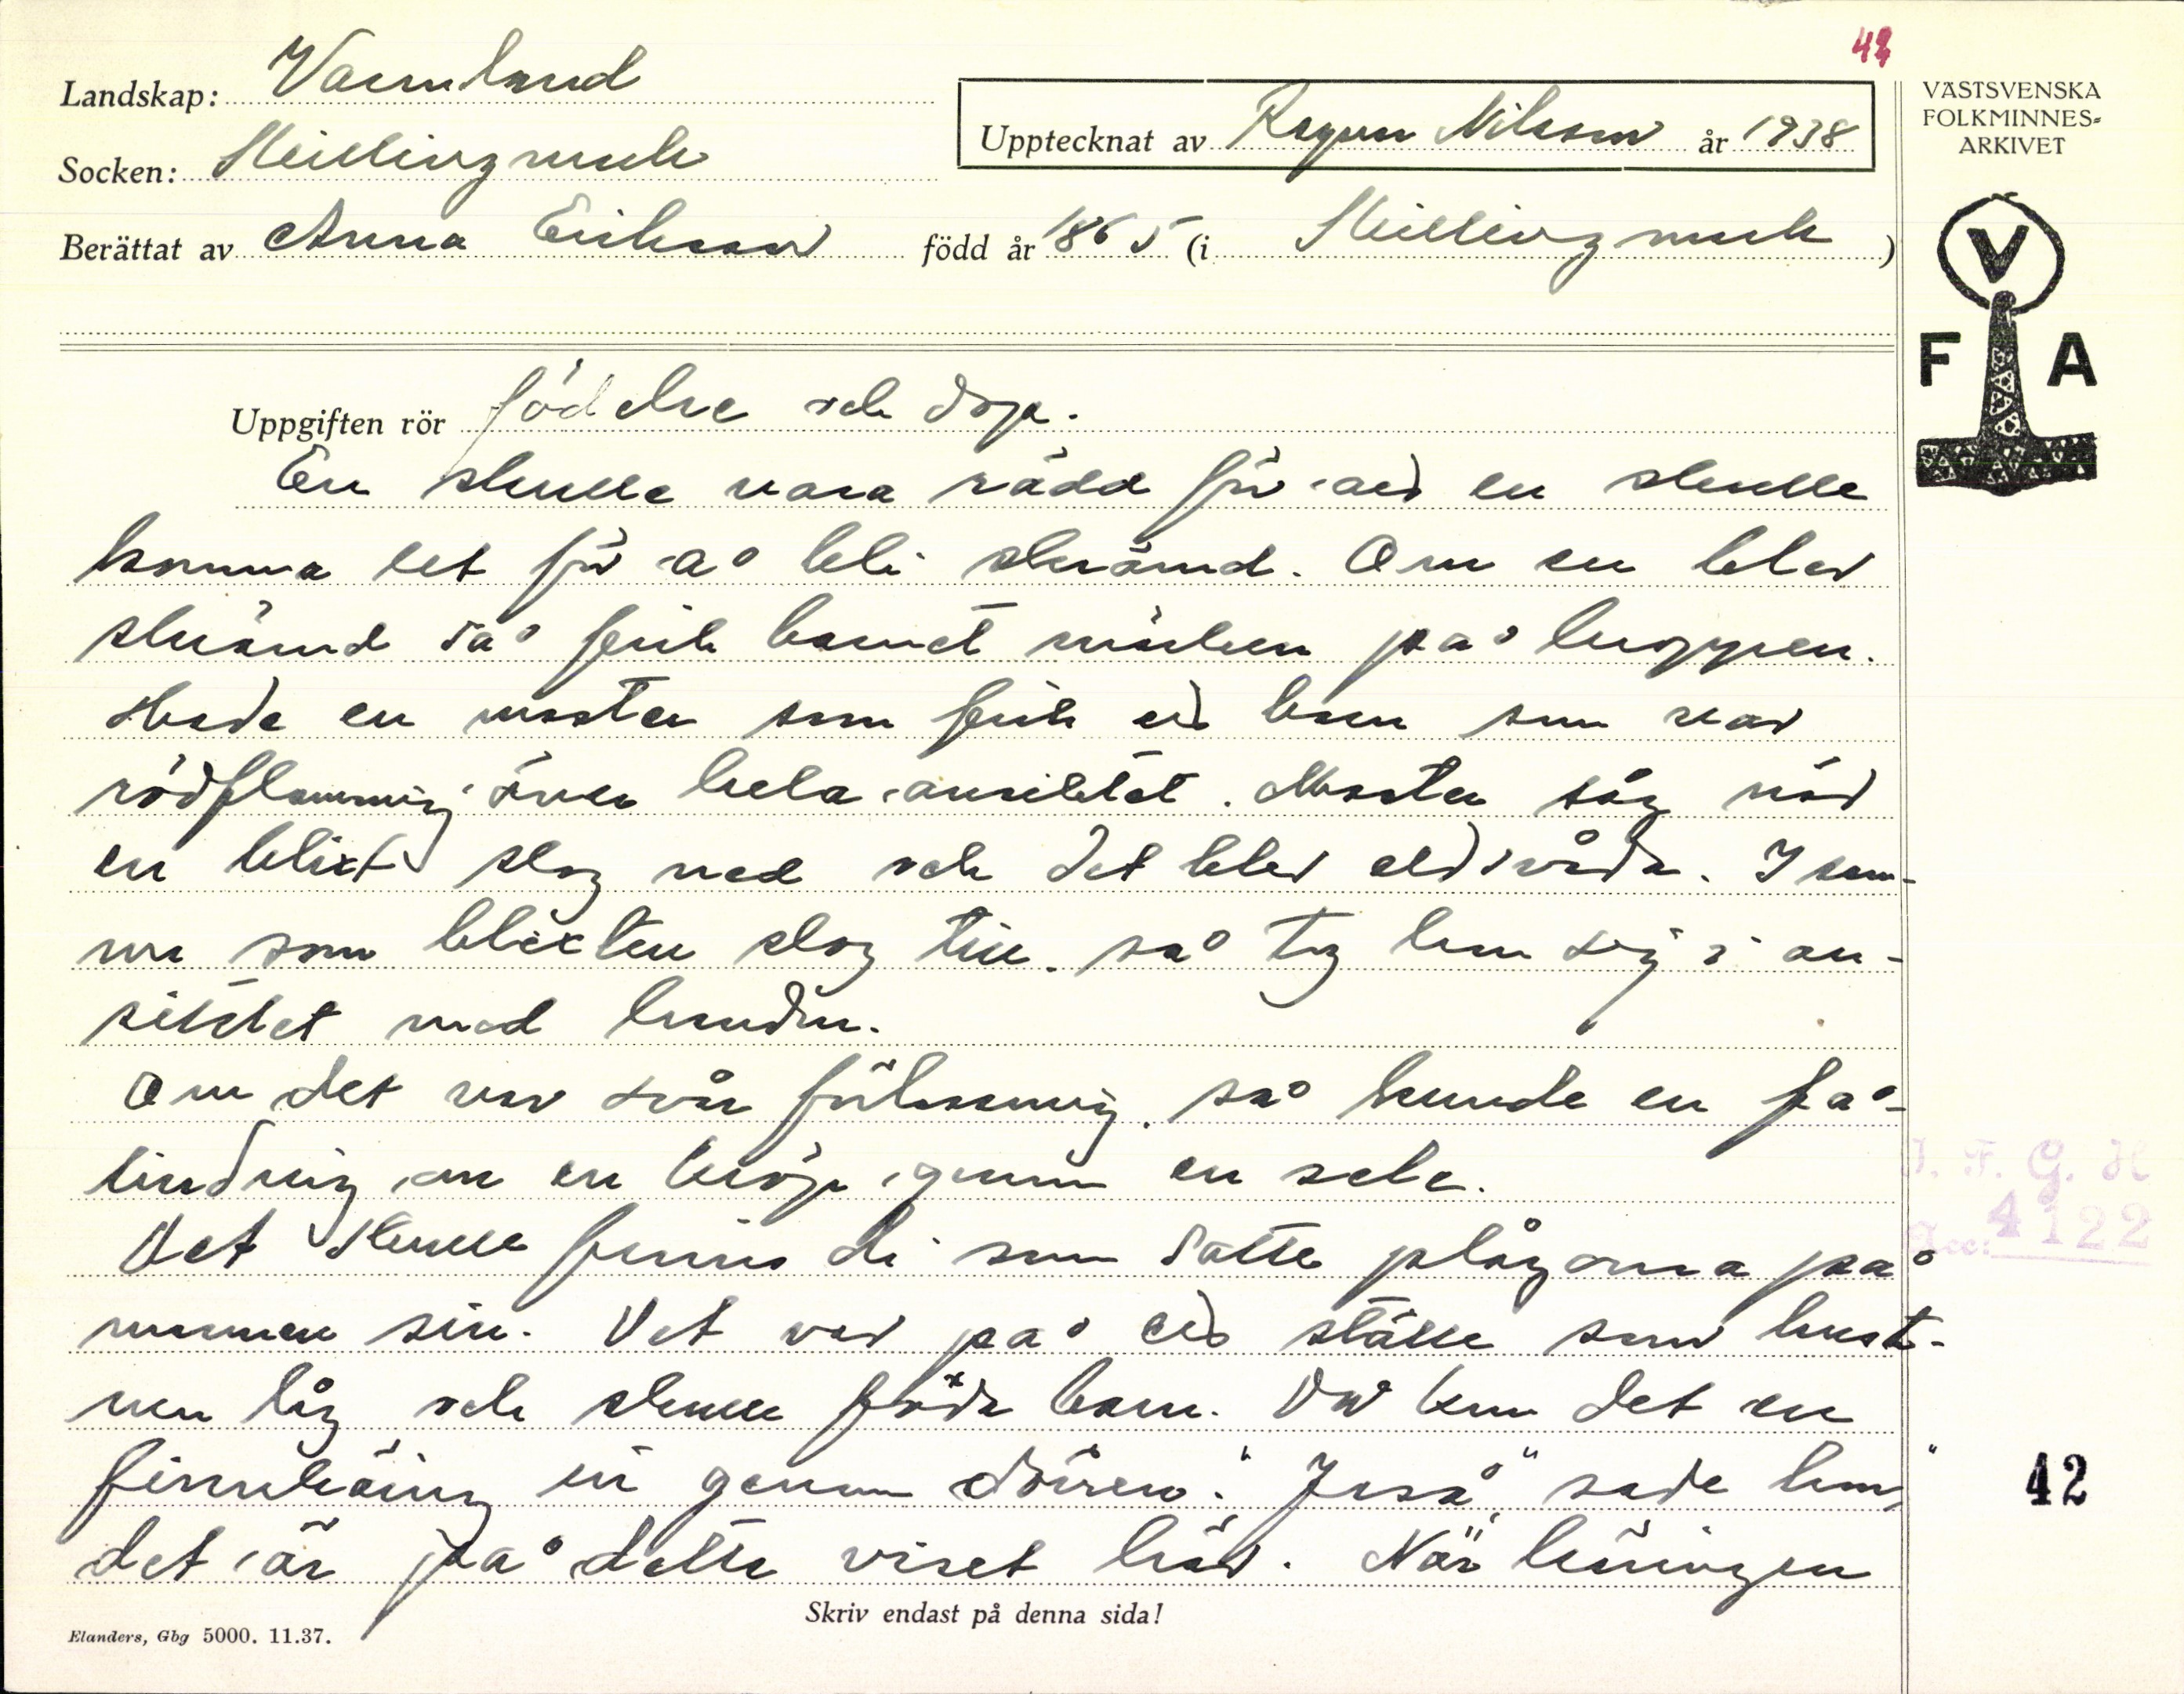 42
Landskap: Värmland
Socken: Skillingmark
Upptecknat av Ragnar Nilsson år 1938
Berättat av Anna Erikson född år 1865 (i Skillingmark)
VÄSTSVENSKA
FOLKMINNES-
ARKIVET
V
F A
Uppgiften rör födelse och dop.
En skulle vara rädd för att en skulle
komma ut för å bli skrämd. Om en blev
skrämd så fick barnet märken på kroppen.
Hade en moster som fick ett barn som var
rödflammig över hela ansiktet. Moster såg när
en blixt slog ned och det blev eldsvåda. I sam-
ma som blixten slog till så tog hon sig i an-
siktet med handen.
Om det var svår förlossning så kunde en få
lindring om en kröp genom en sele.
Det skulle finns di som satte plågorna på
mannen sin. Det var på ett ställe som hust-
run låg och skulle föda barn. Då kom det en
finnkäring in genom dörren. "Jaså" sade hon, "
det är på detta viset här. När käringen
Skriv endast på denna sida!
Elanders, Gbg 5000. 11.37.
I. F. G. H
Acc: 4122
42